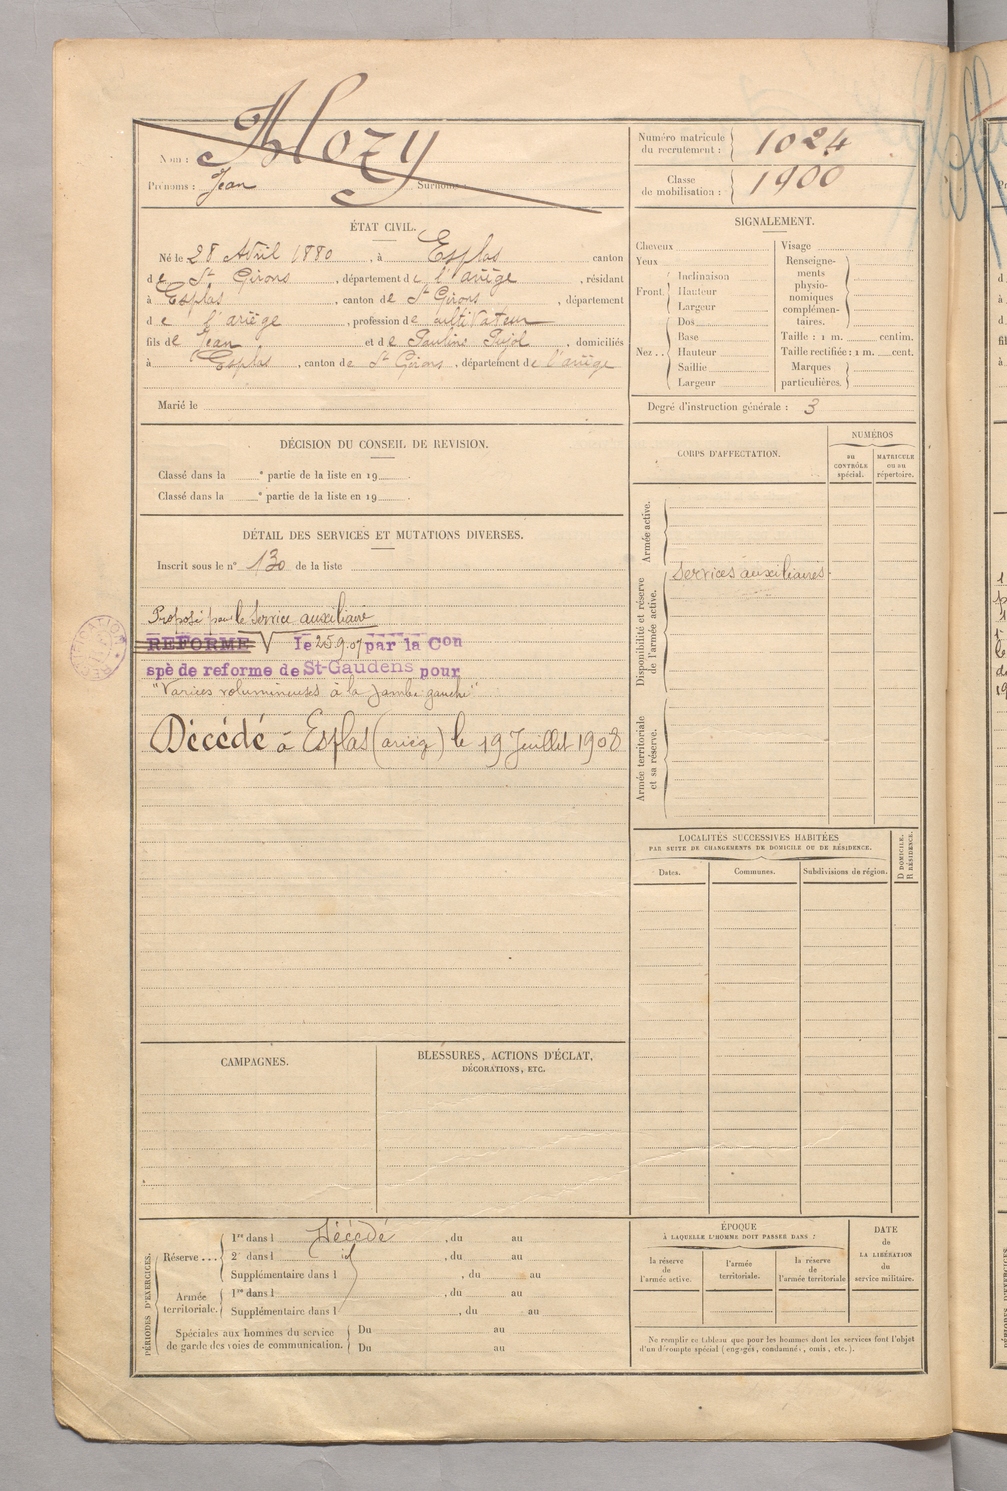 Nom : Alozy
Prénoms : Jean Surnoms :
Numéro matricule du recrutement : 1024
Classe de mobilisation : 1900
ÉTAT CIVIL.
Né le 28 Avril 1880, à Esplas, canton
de St Girons, département de l'ariège, résidant
à Esplas, canton de St Girons, département
de l'ariège, profession de cultivateur
fils de Jean et de Pauline Pujol, domiciliés
à Esplas, canton de St Girons, département de l'ariège
Marié le
DÉCISION DU CONSEIL DE REVISION.
Classé dans la e partie de la liste en 19 .
Classé dans la e partie de la liste en 19 .
DÉTAIL DES SERVICES ET MUTATIONS DIVERSES.
Inscrit sous le n° 130 de la liste
Proposé pour le Service auxiliaire
REFORMÉ V le 25.9.07 par la Con
spè de reforme de St-Gaudens pour
"Varices volumineuses à la jambe gauche"
Décédé à Esplas (arièg) le 19 Juillet 1908
CAMPAGNES.
BLESSURES, ACTIONS D'ÉCLAT,
DÉCORATIONS, ETC.
PÉRIODES D'EXERCICES.
Réserve ...
1re dans l Décédé, du au
2e dans l , du au
Supplémentaire dans l , du au
Armée territoriale.
1re dans l , du au
Supplémentaire dans l , du au
Spéciales aux hommes du service
de garde des voies de communication.
Du au
Du au
SIGNALEMENT.
Cheveux
Yeux
Front.
Inclinaison
Hauteur
Largeur
Nez ..
Dos
Base
Hauteur
Saillie
Largeur
Visage
Renseignements physionomiques complémentaires.
Taille : 1 m. centim.
Taille rectifiée : 1 m. cent.
Marques particulières.
Degré d'instruction générale : 3
CORPS D'AFFECTATION.
NUMÉROS
au CONTRÔLE spécial.
MATRICULE ou au répertoire.
Armée active.
Disponibilité et réserve de l'armée active.
Services auxiliaires
Armée territoriale et sa réserve.
LOCALITÉS SUCCESSIVES HABITÉES
PAR SUITE DE CHANGEMENTS DE DOMICILE OU DE RÉSIDENCE.
D DOMICILE.
R RÉSIDENCE.
Dates.
Communes.
Subdivisions de région.
ÉPOQUE
À LAQUELLE L'HOMME DOIT PASSER DANS :
la réserve de l'armée active.
l'armée territoriale.
la réserve de l'armée territoriale
DATE de LA LIBÉRATION du service militaire.
Ne remplir ce tableau que pour les hommes dont les services font l'objet
d'un décompte spécial (engagés, condamnés, omis, etc.).